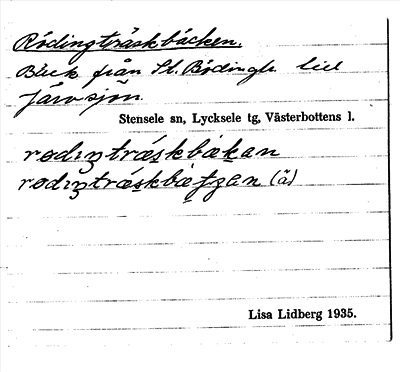 Rödingträskbäcken.
Bäck från St. Rödingtr. till
Järvsjön.
Stensele sn, Lycksele tg, Västerbottens l.
rødıŋtrǽskbækan
rødıŋtrǽskbæƫʒan (ä)
Lisa Lidberg 1935.